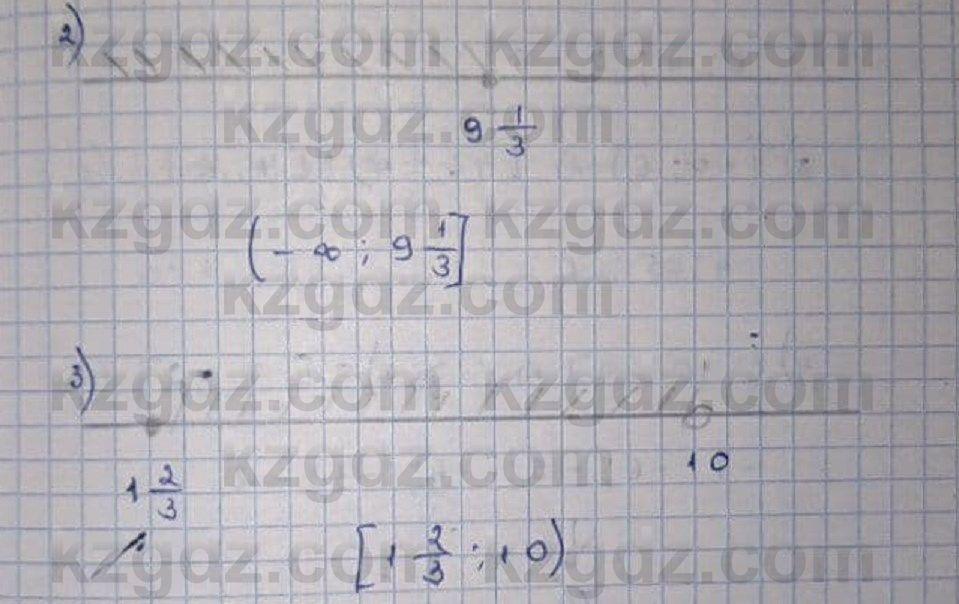 2)
kzgdz.com kzgdz.com
9 1/3
kzgdz.com
kzgdz.com kzgdz.com
(-∞; 9 1/3]
kzgdz.com
3)
kzgdz.com kzgdz.com
1 2/3 10
kzgdz.com
[1 2/3; 10)
kzgdz.com kzgdz.com